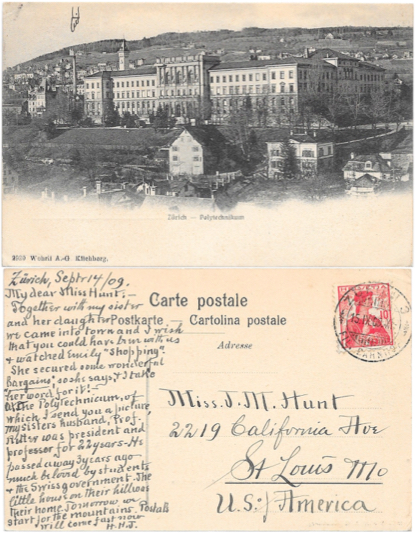 Zürich — Polytechnikum
Wehrli A.-G. Kilchberg.
Zürich, Septr 14/09.
My dear Miss Hunt:—
Together with my sister
and her daughter
we came into town and I wish
that you could have been with us
& watched Emily "Shopping".
She secured some wonderful
Bargains, so she says, & I take
her word for it!—
the Polytechnicum, of
which I send you a picture,
my sisters husband, Prof.
Ritter was president and
professor for 22 years—He
passed away 3 years ago
much beloved by students
& the Swiss government. The
little house on the
their home. Tomorrow we
start for the mountains. Postals
will come fast now
H.H.J.
Carte postale
Postkarte — Cartolina postale
Adresse
Miss. J. M. Hunt
2219 California Ave
St Louis Mo
U.S. of America